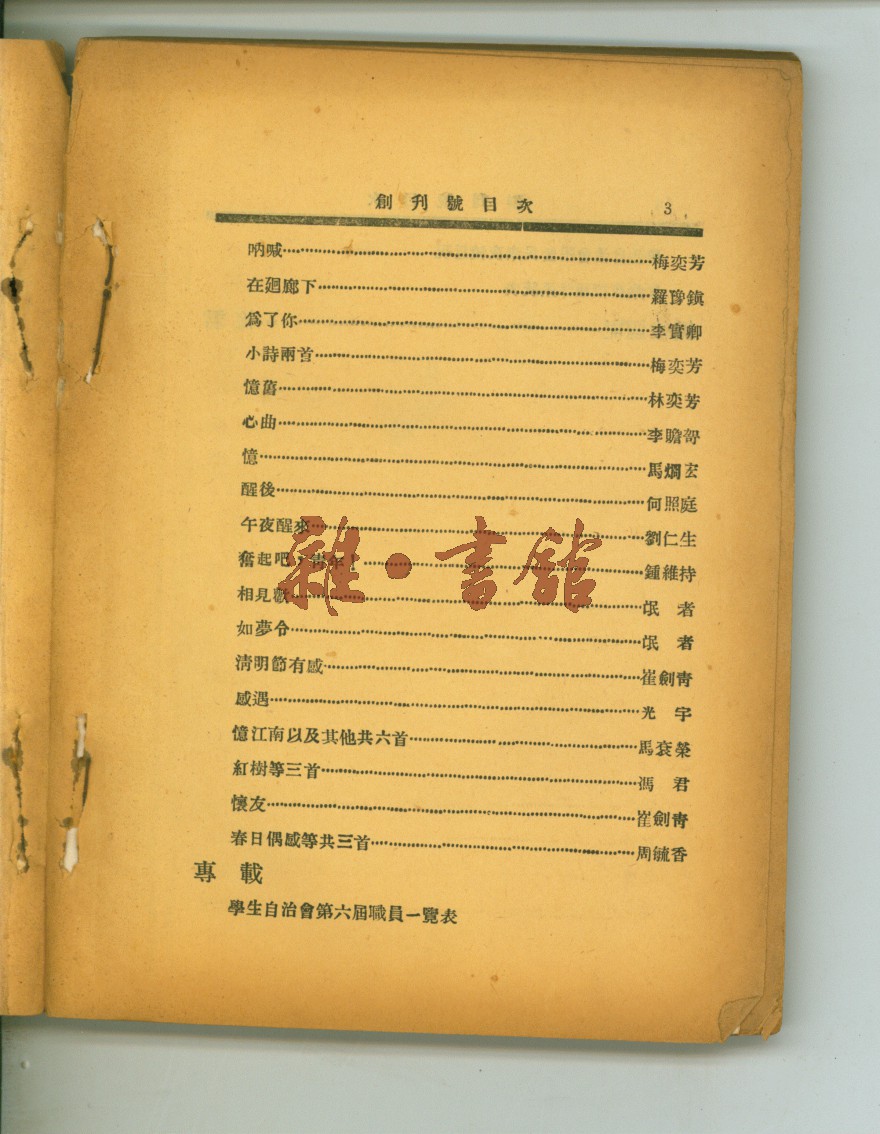 創刊號目次 3
吶喊……梅奕芳
在廻廊下……羅豫鎭
爲了你……李實卿
小詩兩首……梅奕芳
憶舊……林奕芳
心曲……李贍
憶……馬烱玄
醒後……何照庭
午夜醒來……劉仁生
奮起吧，靑年！……鍾維持
相見歡……氓者
如夢令……氓者
淸明節有感……崔劍靑
感遇……光宇
憶江南以及其他共六首……馬袞榮
紅樹等三首……馮君
懷友……崔劍靑
春日偶感等共三首……周毓香
專載
學生自治會第六屆職員一覽表
雜·書館